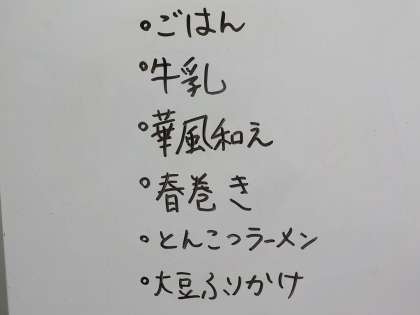 ・ごはん
・牛乳
・華風和え
・春巻き
・とんこつラーメン
・大豆ふりかけ